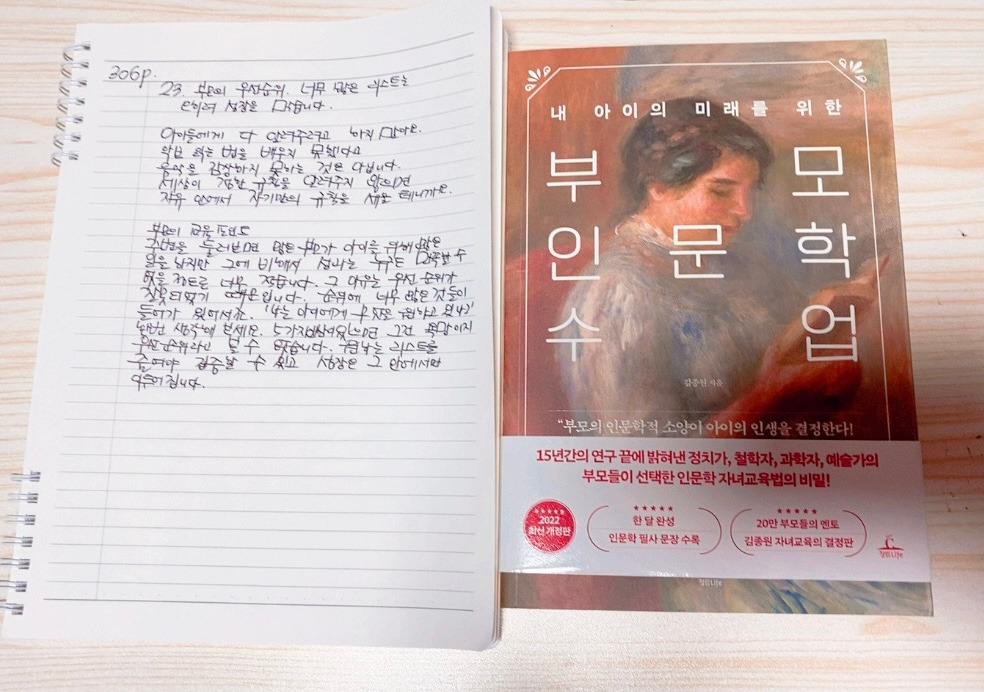 306p.
23. 부모의 우선순위. 너무 많은 리스트는
오히려 성장을 막습니다.
아이들에게 다 알려주려고 하지 마세요.
악보 읽는 법을 배우지 못했다고
음악을 감상하지 못하는 것은 아닙니다.
세상이 정한 규칙을 알려주지 않으면
자유 안에서 자기만의 규칙을 세울 테니까요.
부모의 교육 포인트
주변을 둘러보면 많은 부모가 아이를 위해 많은
일을 하지만 그에 비해서 성과는 누구도 만족할 수
없을 정도로 너무 적습니다. 그 이유는 우선 순위가
잘못되었기 때문입니다. 순위에 너무 많은 것들이
들어가 있어서죠. '나는 아이에게 무엇을 원하고 있나?'
한번 생각해 보세요. 5가지 이상 있으면 그건 욕망이지
우선순위라고 볼 수 없습니다. 원하는 리스트를
줄여야 집중할 수 있고 성장은 그 안에서만
이루어집니다.
내 아이의 미래를 위한
부모
인문학
수업
김종원 지음
"부모의 인문학적 소양이 아이의 인생을 결정한다!
15년간의 연구 끝에 밝혀낸 정치가, 철학자, 과학자, 예술가의
부모들이 선택한 인문학 자녀교육법의 비밀!
2022
최신 개정판
한 달 완성
인문학 필사 문장 수록
20만 부모들의 멘토
김종원 자녀교육의 결정판
청림Life
청림Life